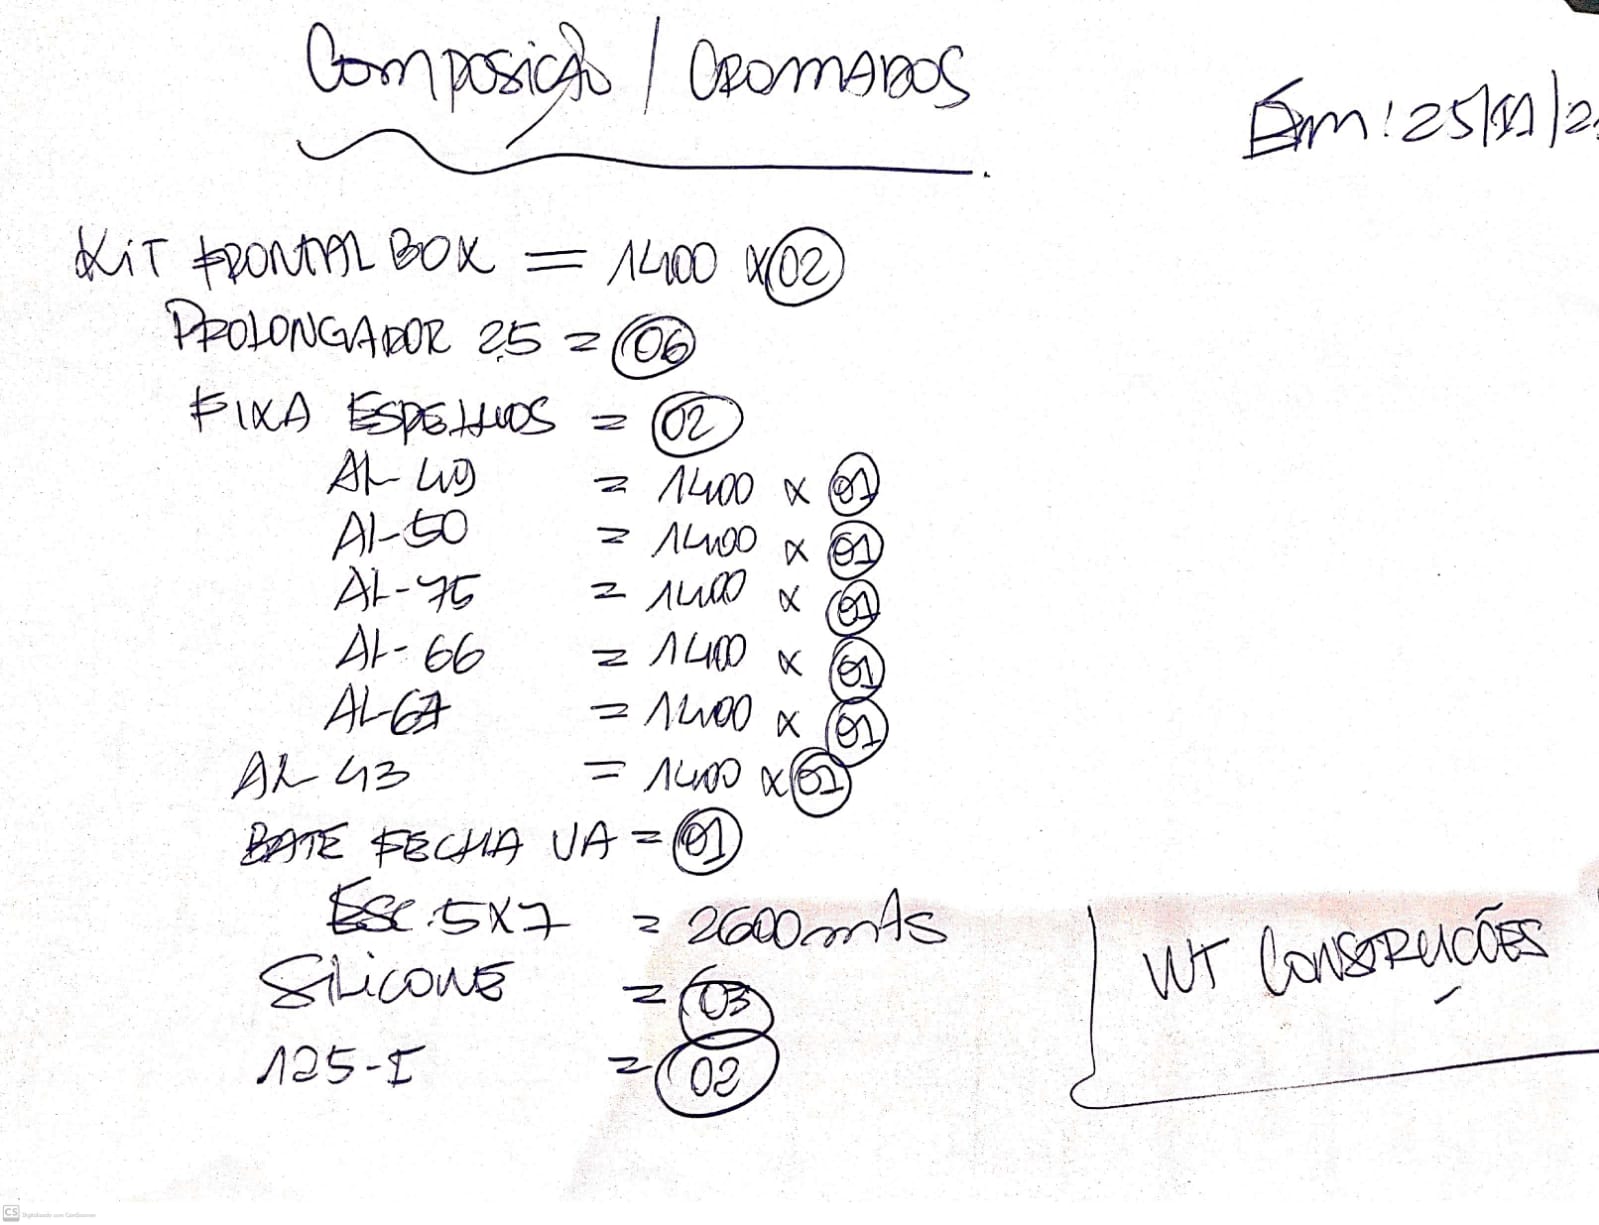 Composição / CROMADOS
Em: 25/11/2
KiT FRONTAL BOX = 1400 x 02
PROLONGADOR 2,5 = 06
FIXA ESPELHOS = 02
AL-49 = 1400 x 01
AL-50 = 1400 x 01
AL-75 = 1400 x 01
AL-66 = 1400 x 01
AL-67 = 1400 x 01
AL-43 = 1400 x 01
BATE FECHA VA = 01
ESC. 5X7 = 2600 mts
SiLiCONE = 03
125-I = 02
WT CONSTRUÇÕES
CS Digitalizado com CamScanner